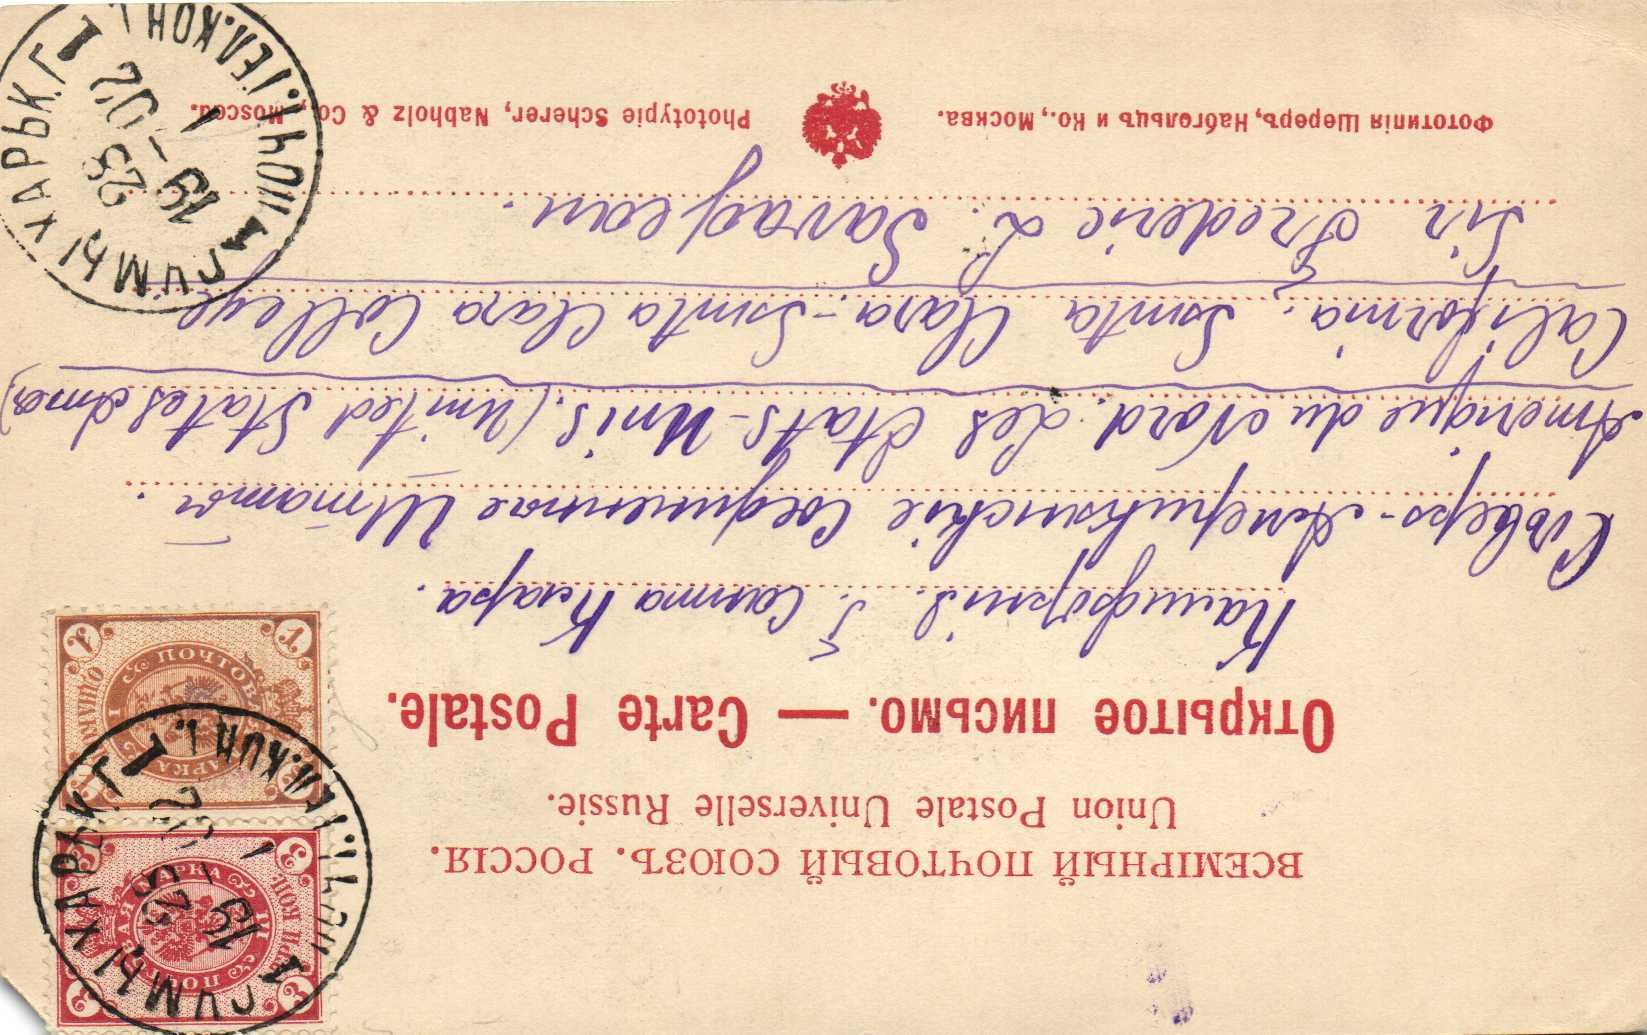 ВСЕМІРНЫЙ ПОЧТОВЫЙ СОЮЗЪ. РОССІЯ.
Union Postale Universelle Russie.
Открытое письмо. — Carte Postale.
Калифорнія. Г. Санта Клара.
Сѣверо-Американскіе Соединенные Штаты.
Amerique du Nord. Les Etats-Unis. (United States Amer.)
California. Santa Clara - Santa Clara College
Sir Frederic L.
Фототипія Шереръ, Набгольцъ и Ко., Москва.
Phototypie Scherer, Nabholz & Co., Moscou.
ПОЧТОВАЯ МАРКА
3 КОП.
1
СУМЫ ХАРЬК. Г.
23
19 – 02
1
СУМЫ ХАРЬК. Г.
23
19
1